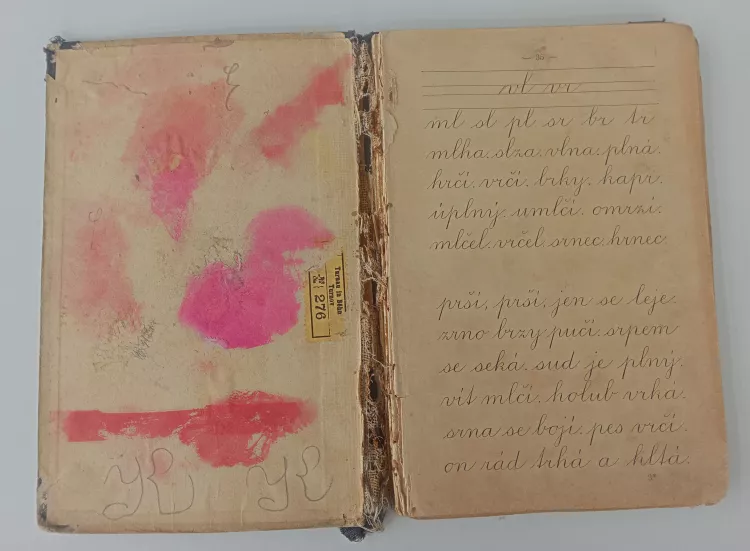 Turnau in Böhm
Turnov
276
K K
vl vr
ml sl pl sr br tr
mlha. slza. vlna. plná.
hrčí. vrčí. brky. kapr.
úplný. umlčí. omrzí.
mlčel. vrčel. srnec. hrnec.
prší, prší. jen se leje.
zrno brzy pučí. srpem
se seká. sud je plný.
vít mlčí. holub vrká.
srna se bojí. pes vrčí.
on rád trhá a hltá.